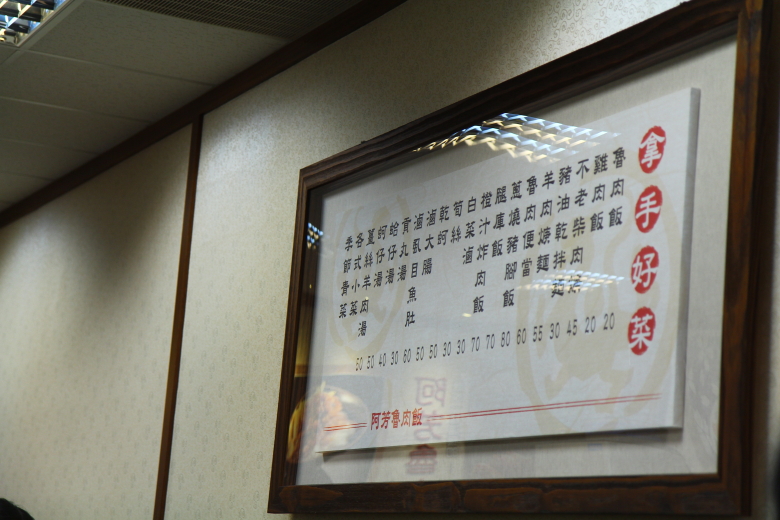 拿手好菜
魯肉飯
雞肉飯
不老柴肉
豬油乾拌麵
羊肉焿麵
魯肉便當
蔥燒豬腳飯
腿庫飯
橙汁炸肉飯
白菜滷
筍絲
滷大腸
滷虱目魚肚
貢丸湯
蛤仔湯
蚵仔湯
薑絲羊肉湯
各式小菜
季節青菜
50 50 40 30 60 50 50 30 30 70 70 80 60 55 30 45 20 20
阿芳魯肉飯